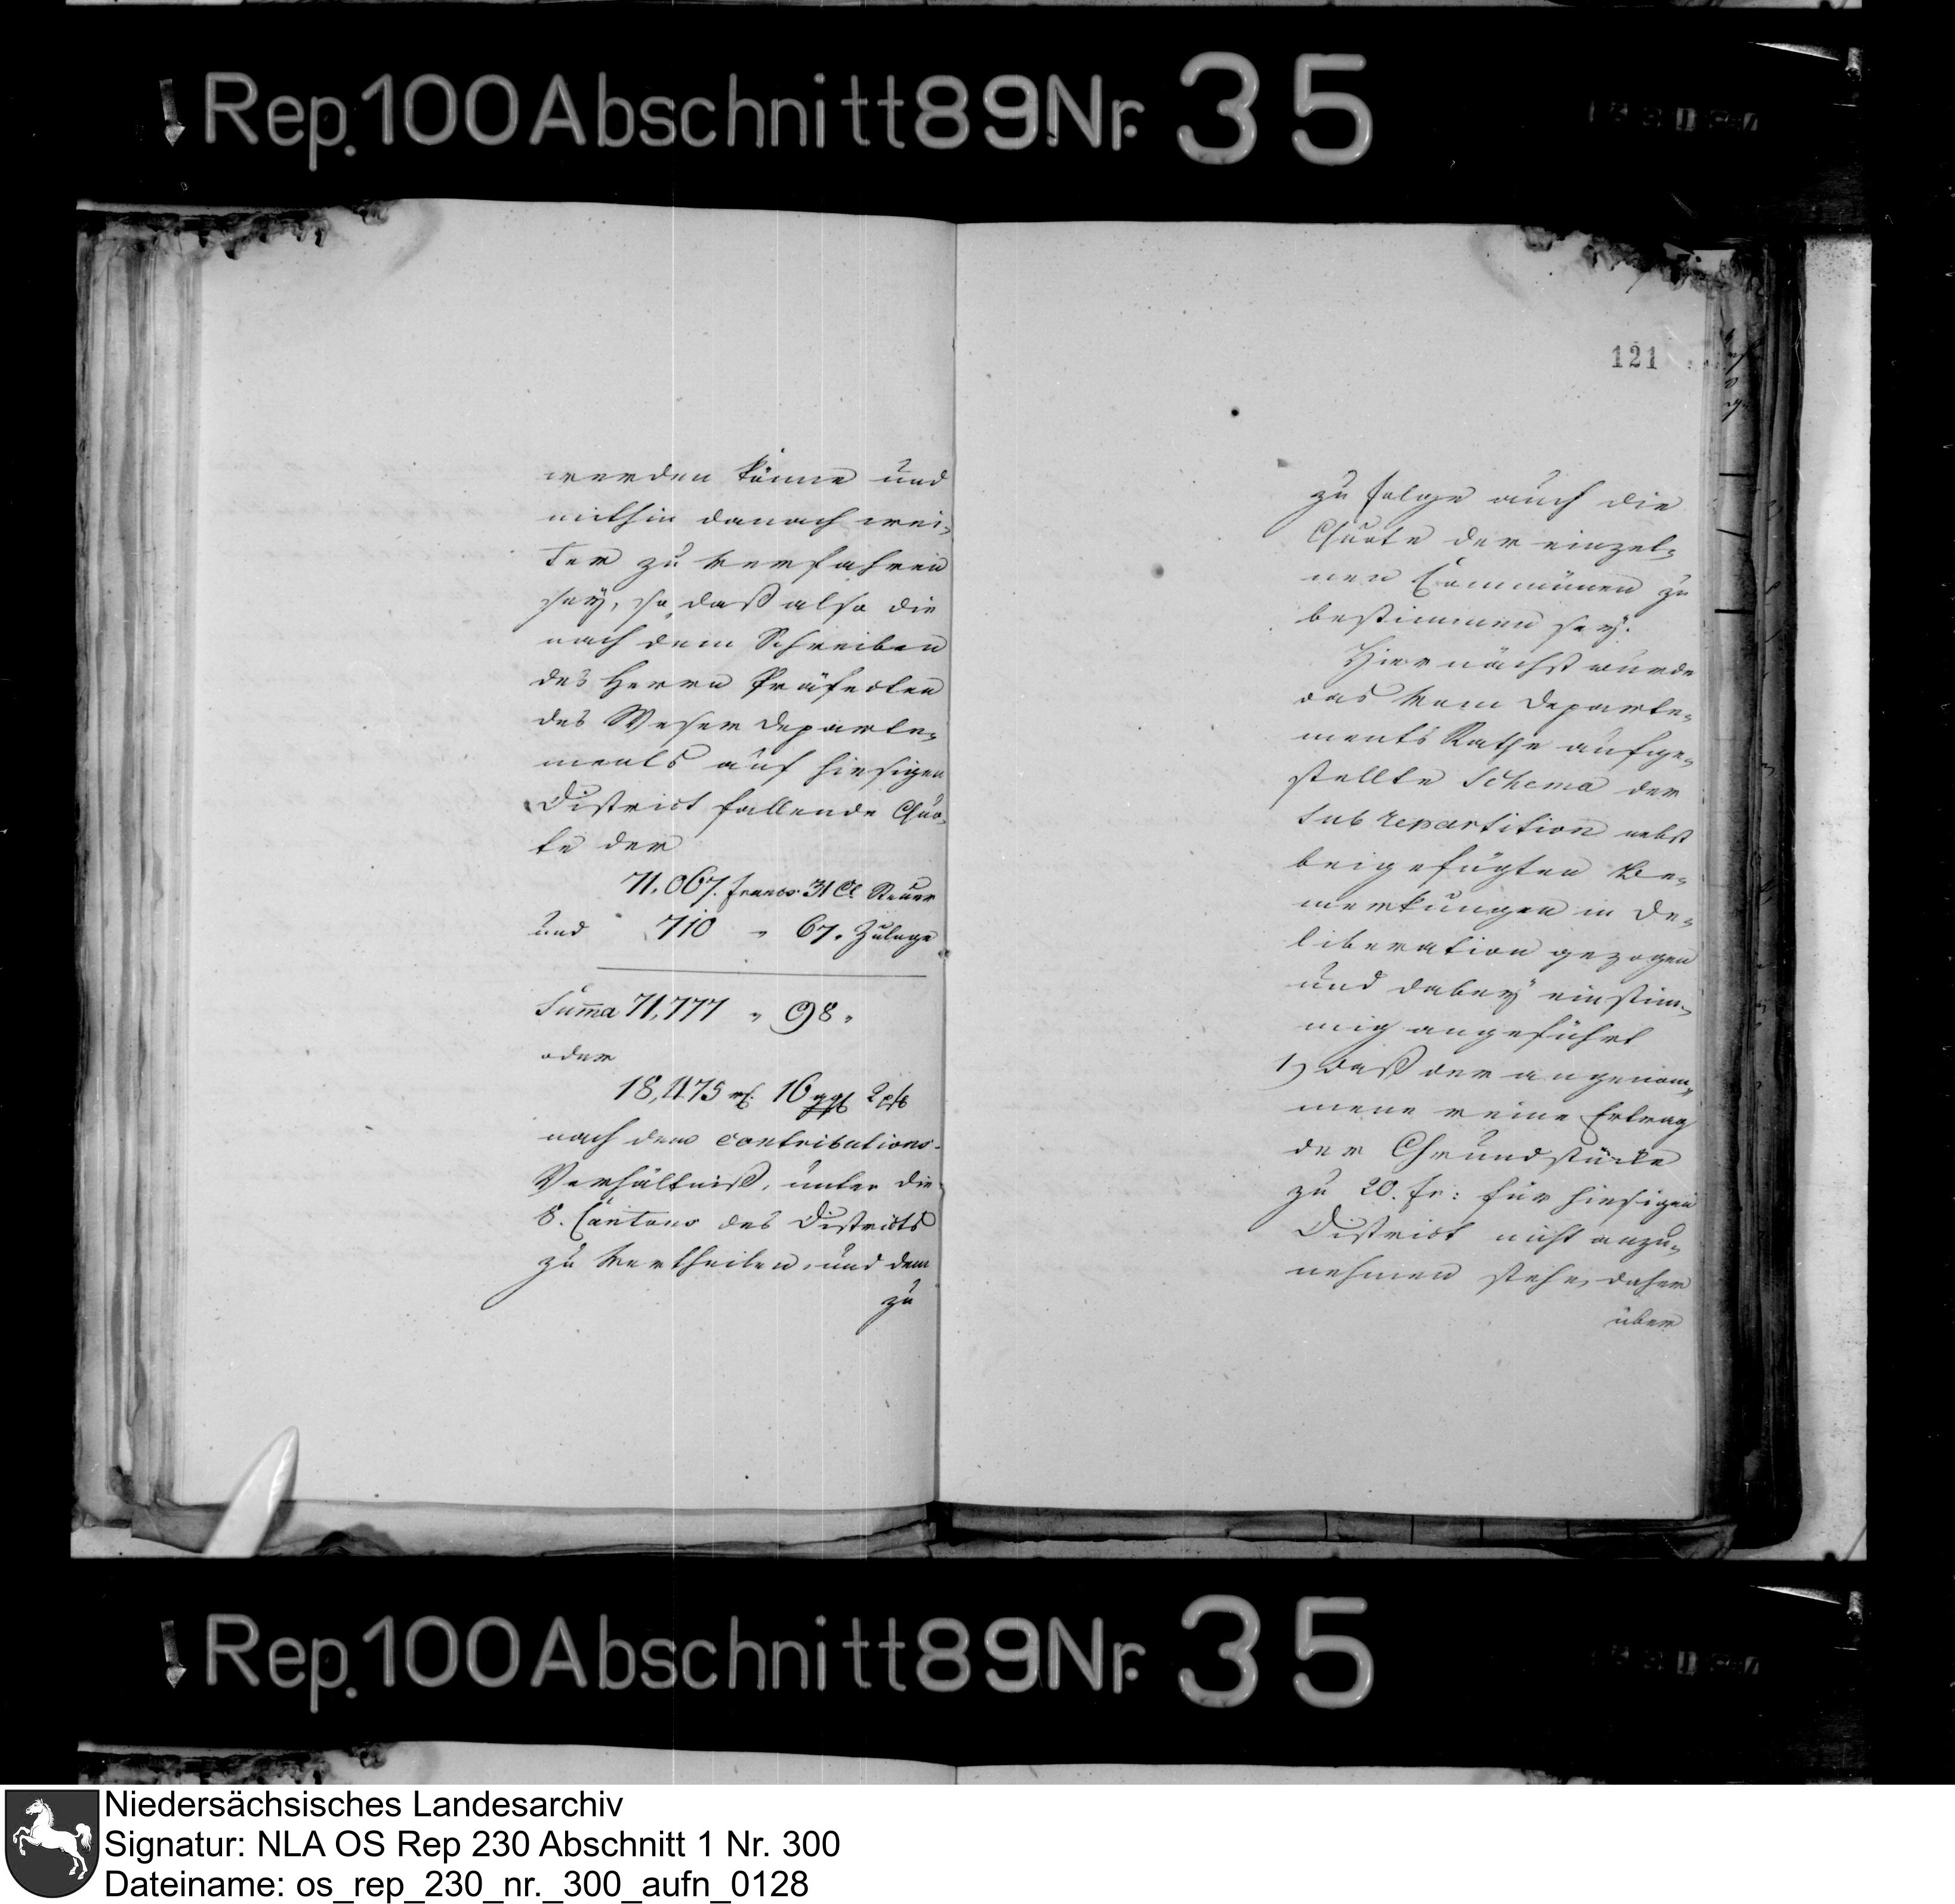 Rep. 100 Abschnitt 89 Nr. 35
werden könne und
mithin danach wei-
ter zu verfahren
sey, so daß also die
nach dem Schreiben
des Herrn Präfecten
des Weser Departe-
ments auf hiesigen
District fallende Quo-
te der
71,067. francs. 31 Ct Steuer
und 710 " 67. Zulage
Summa 71,777 " 98 "
oder
18,475 rt. 16 ggr 2 pf
nach dem contributions-
Verhältniß, unter die
8. Cantons des Districts
zu vertheilen, und dem
zu
121
zu folge auch die
Quote der einzel-
nen Communen zu
bestimmen sey.
Hiernächst wurde
das vom Departe-
ments Rathe aufge-
stellte Schema der
subrepartition nebst
beigefügten Be-
merkungen in De-
liberation gezogen
und dabey einstim-
mig angeführt
1) daß der angenom-
mene reine Ertrag
der Grundstücke
zu 20. fr: für hiesigen
District nicht anzu-
nehmen stehe, daher
über
Rep. 100 Abschnitt 89 Nr. 35
Niedersächsisches Landesarchiv
Signatur: NLA OS Rep 230 Abschnitt 1 Nr. 300
Dateiname: os_rep_230_nr._300_aufn_0128